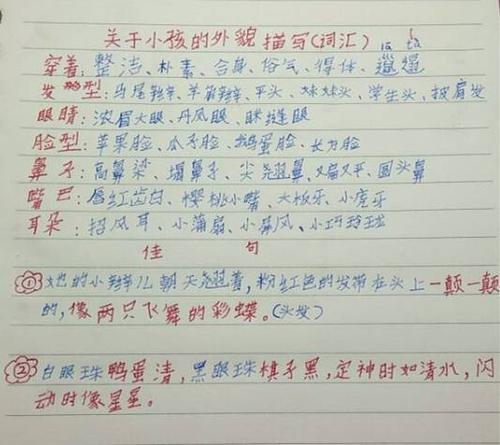 关于小孩的外貌描写(词汇) lā tā
穿着:整洁、朴素、合身、俗气、得体、邋遢
发型:马尾辫、羊角辫、平头、妹妹头、学生头、披肩发
眼睛:浓眉大眼、丹凤眼、眯缝眼
脸型:苹果脸、瓜子脸、鹅蛋脸、长方脸
鼻子:高鼻梁、塌鼻子、尖翘鼻、又扁又平、圆头鼻
嘴巴:唇红齿白、樱桃小嘴、大板牙、小虎牙
耳朵:招风耳、小蒲扇、小屏风、小巧玲珑
佳 句
① 她的小辫儿朝天翘着,粉红色的发带在头上一颠一颠
的,像两只飞舞的彩蝶。(头发)
② 白眼珠鸭蛋清,黑眼珠棋子黑,定神时如清水,闪
动时像星星。